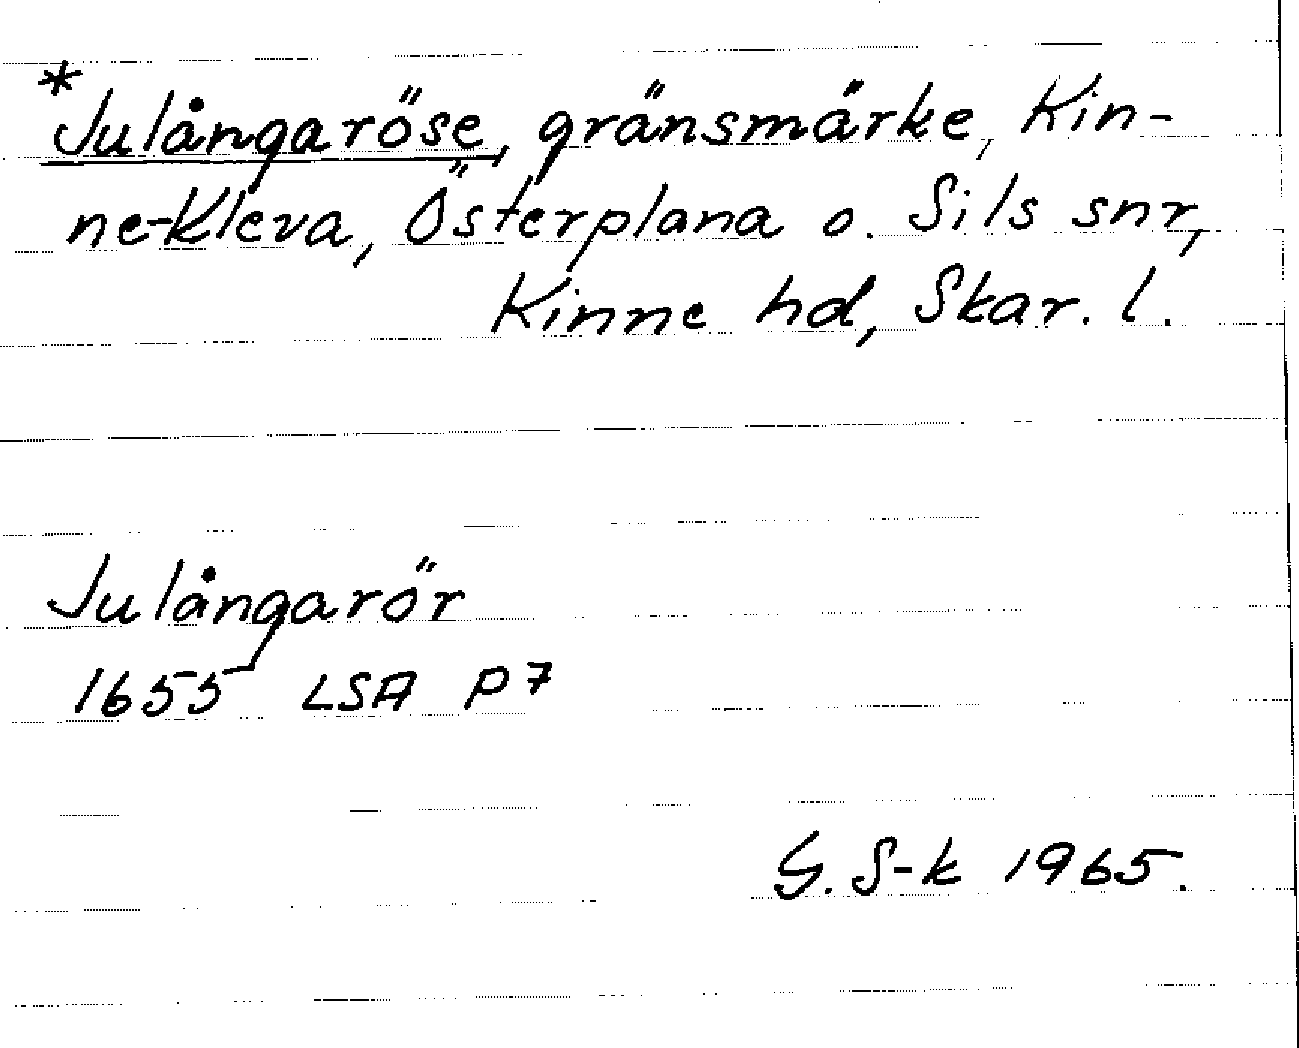 *Julångaröse, gränsmärke, Kin-
ne-Kleva, Österplana o. Sils snr,
Kinne hd, Skar. l.
Julångarör
1655 LSA P7
G. S-k 1965.